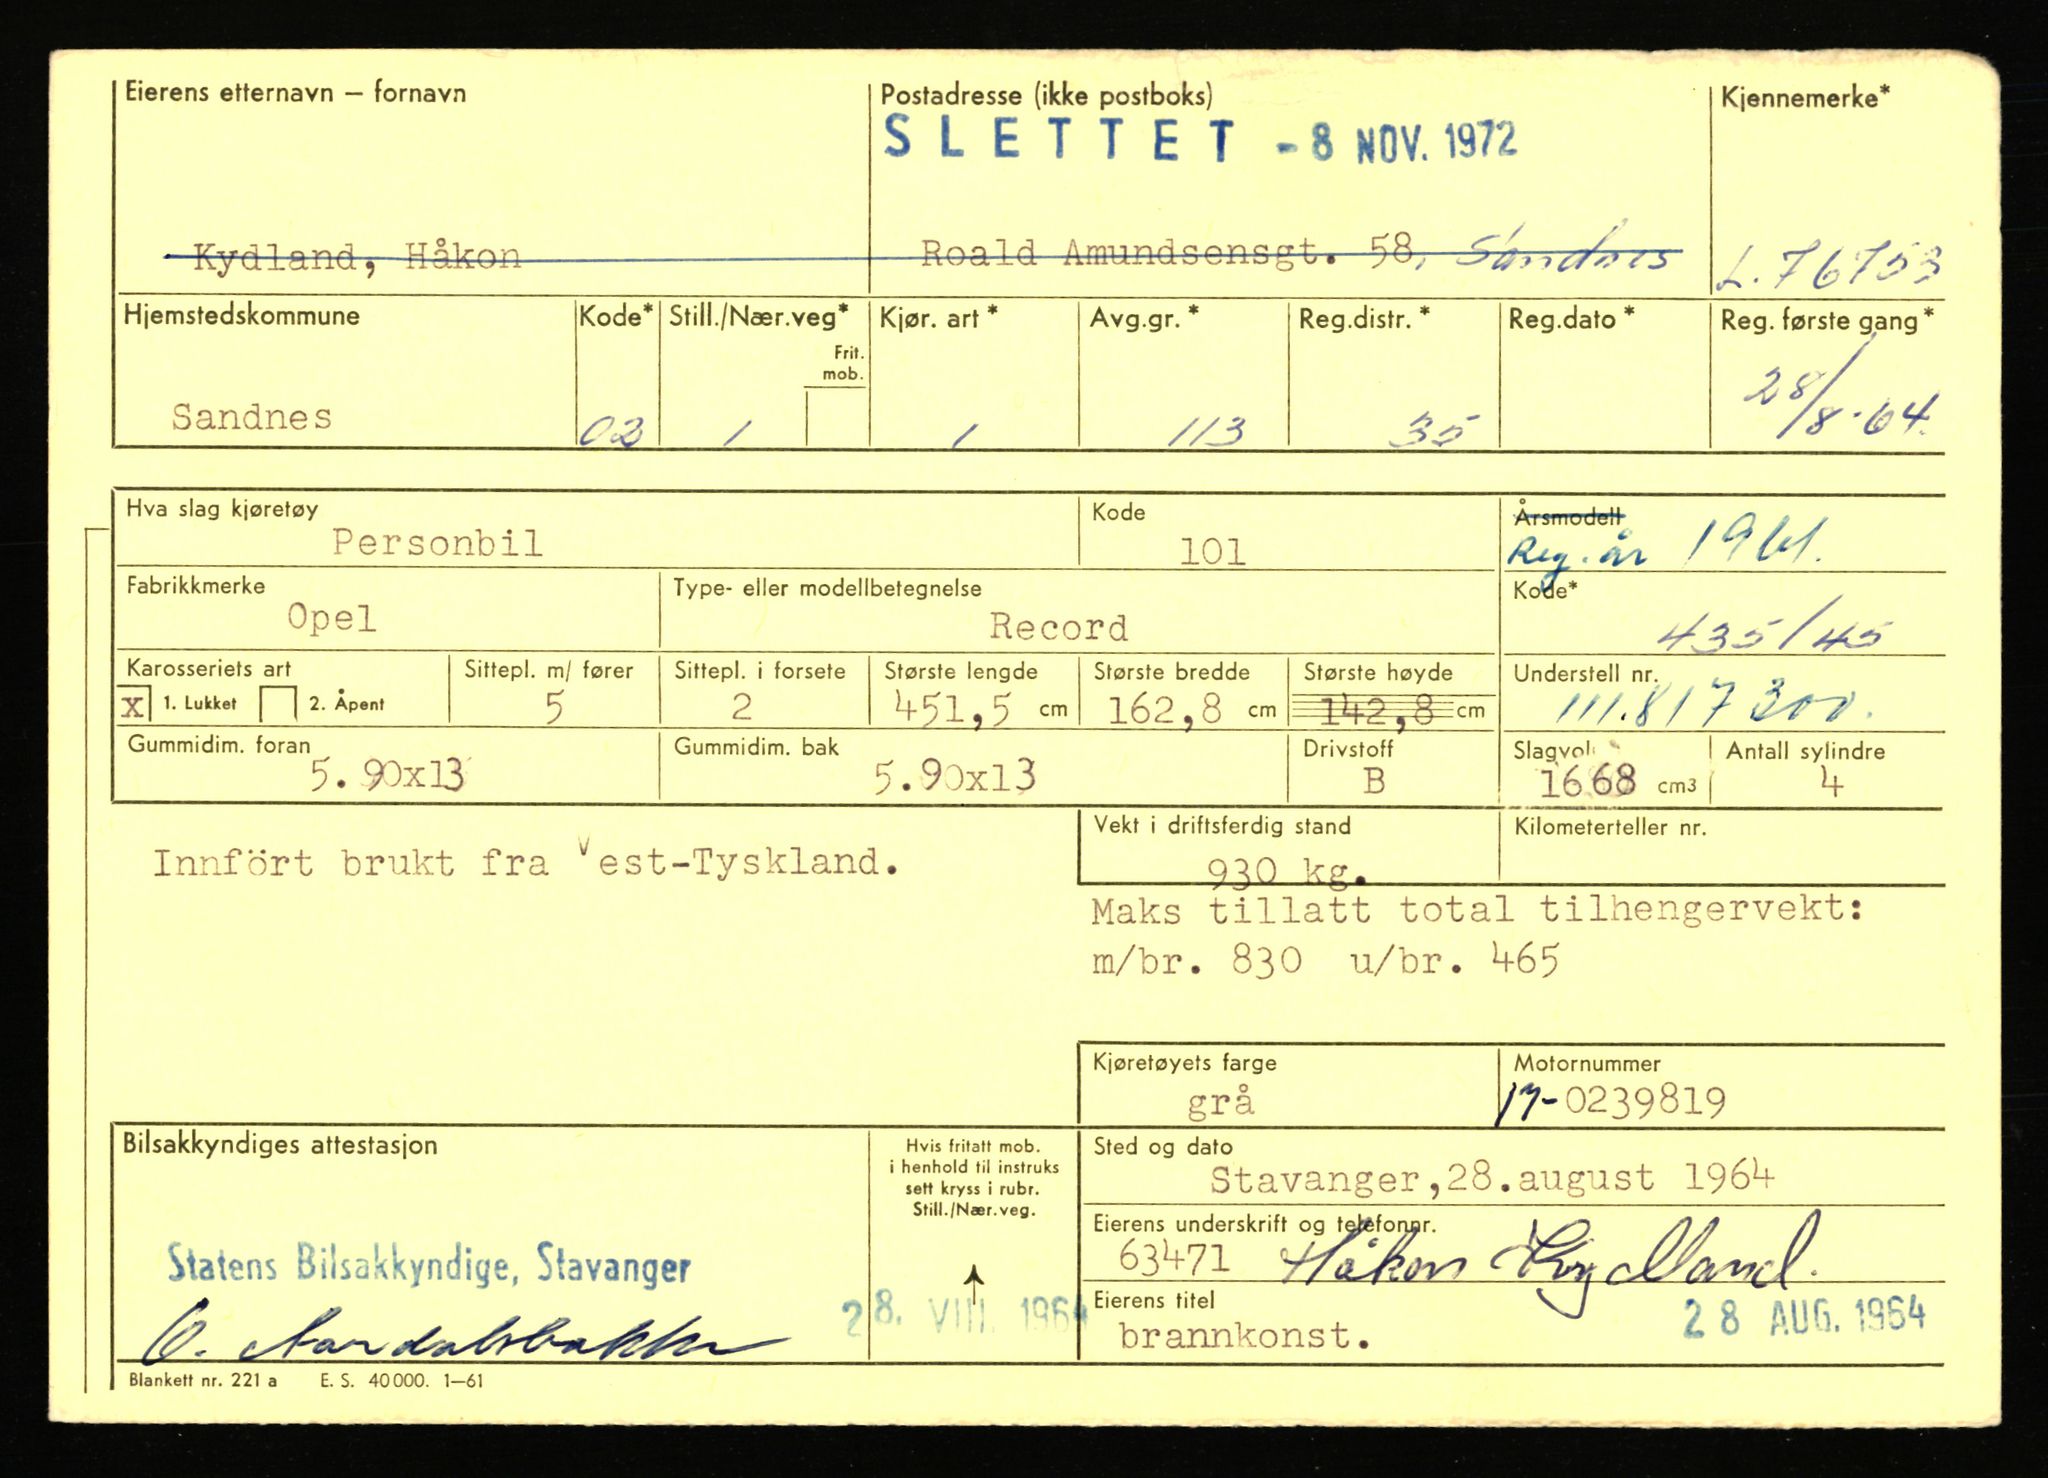 Eierens etternavn – fornavn
Postadresse (ikke postboks)
Kjennemerke*
SLETTET - 8 NOV. 1972
Kydland, Håkon
Roald Amundsensgt. 58, Sandnes
L.76753
Hjemstedskommune
Kode*
Still./Nær.veg*
Frit. mob.
Kjør. art*
Avg.gr.*
Reg.distr.*
Reg.dato*
Reg. første gang*
Sandnes
02
1
1
113
35
28/8-64.
Hva slag kjøretøy
Personbil
Kode
101
Årsmodell
Reg. år 1961.
Fabrikkmerke
Opel
Type- eller modellbetegnelse
Record
Kode*
435/45
Karosseriets art
x 1. Lukket 2. Åpent
Sittepl. m/ fører
5
Sittepl. i forsete
2
Største lengde
451,5 cm
Største bredde
162,8 cm
Største høyde
142,8 cm
Understell nr.
111.817300.
Gummidim. foran
5.90x13
Gummidim. bak
5.90x13
Drivstoff
B
Slagvol
1668 cm3
Antall sylindre
4
Innfört brukt fra Vest-Tyskland.
Vekt i driftsferdig stand
930 kg.
Kilometerteller nr.
Maks tillatt total tilhengervekt:
m/br. 830 u/br. 465
Kjøretøyets farge
grå
Motornummer
17-0239819
Bilsakkyndiges attestasjon
Hvis fritatt mob.
i henhold til instruks
sett kryss i rubr.
Still./Nær.veg.
Sted og dato
Stavanger,28.august 1964
Eierens underskrift og telefonnr.
63471 Håkon Kydland.
Statens Bilsakkyndige, Stavanger
28. VIII. 1964
Eierens titel
brannkonst.
28 AUG. 1964
Blankett nr. 221 a E. S. 40 000. 1–61